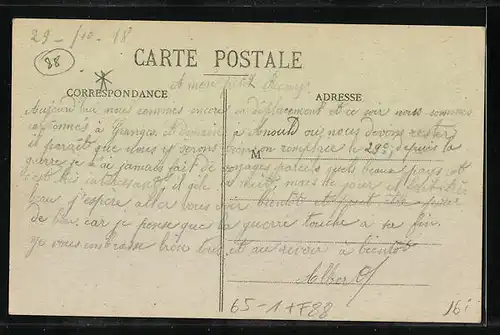 29-10-18
88
CARTE POSTALE
A mon petit
CORRESPONDANCE
ADRESSE
Aujourd'hui nous sommes encore en déplacement et ce soir nous sommes
cantonnés à Granges et demain à Anould où nous devons rester
il paraît que nous y serons on remplace le 29e, depuis la
M
guerre je n'ai jamais fait de voyages pareils quels beaux pays et
c'est très intéressant, il que la nuit, mais de jour
beau j'espère aller vous voir bientôt
de car je pense que la guerre touche à sa fin.
Je vous embrasse bien tous et au revoir à bientôt
Albert
65-1+F88
16